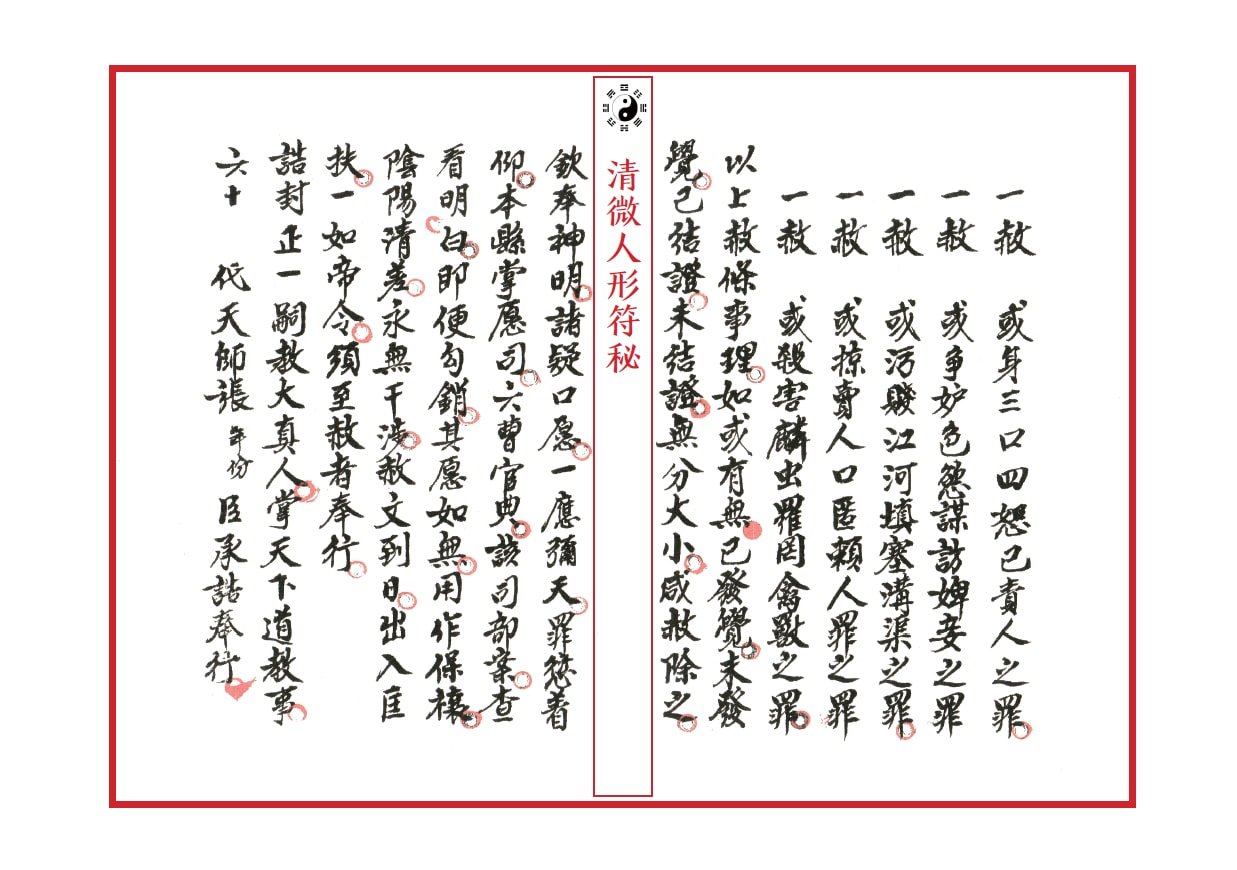 一赦　或身三口四恕己責人之罪
一赦　或爭妒色慾謀訪婢妾之罪
一赦　或污賤江河填塞溝渠之罪
一赦　或掠賣人口匿賴人罪之罪
一赦　或殺害麟虫羅罔禽獸之罪
以上赦條事理如或有無已發覺未發
覺已结證未结證無分大小咸赦除之
清微人形符秘
欽奉神明諸疑口愿一應彌天罪愆着
仰本縣掌愿司六曹官典該司部案查
看明白即便勾銷其愿如無用作保禳
陰陽清差永無干涉赦文到日出入匡
扶一如帝令須至赦者奉行
誥封正一嗣教大真人掌天下道教事
六十　代天師張年份臣承誥奉行